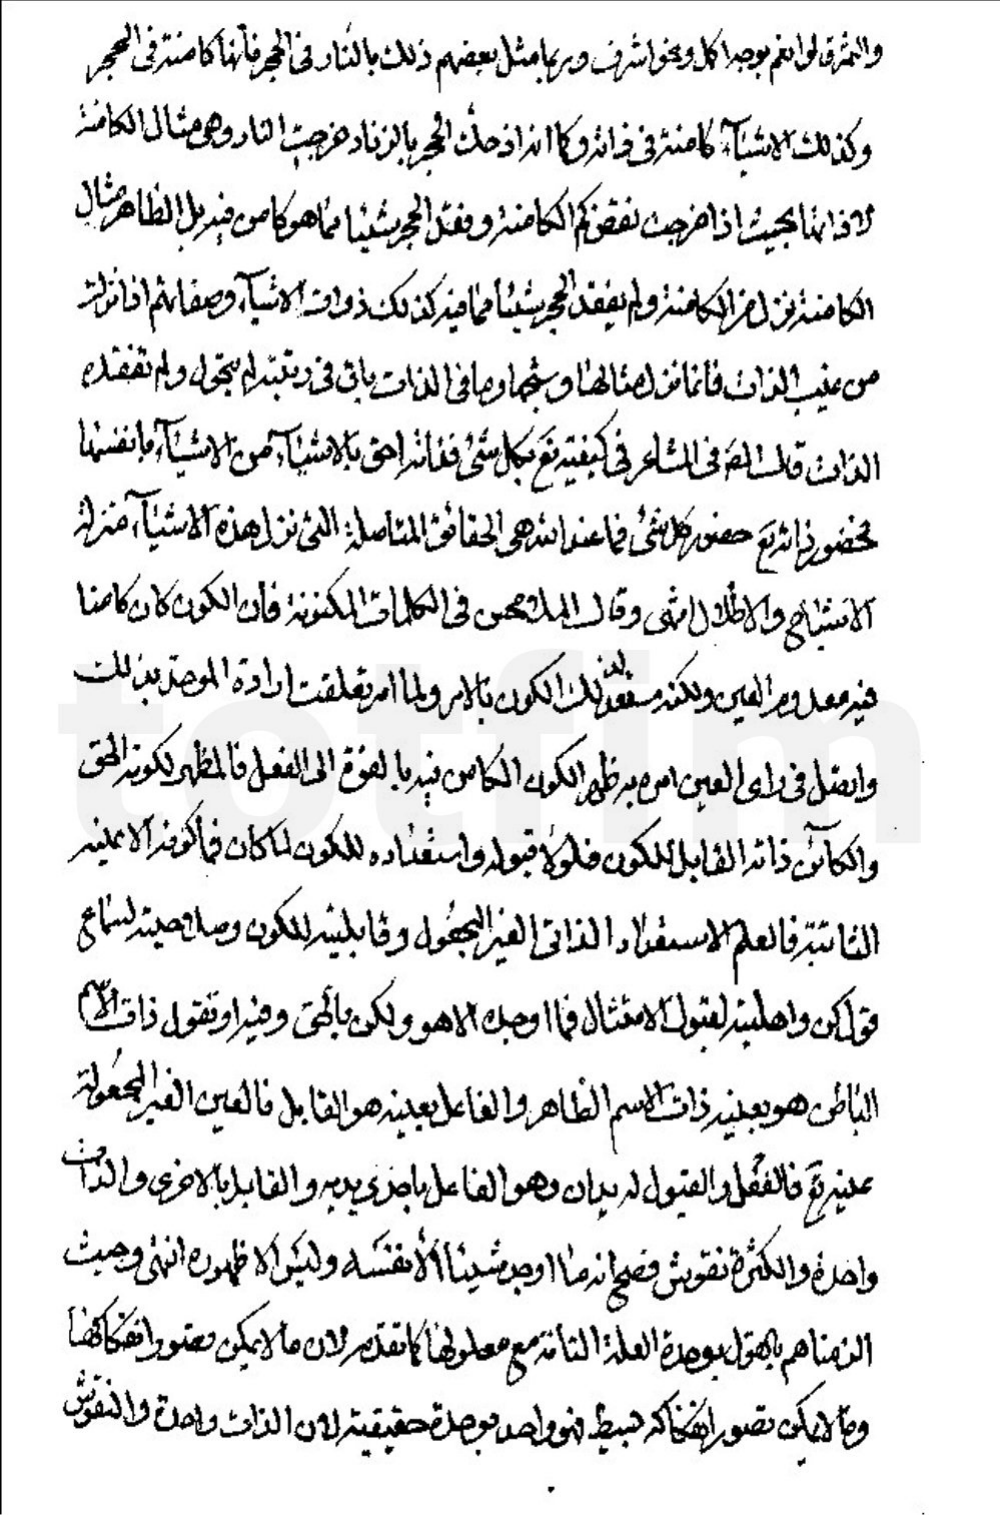 والكثرة قالوا نعم بوجه اكمل ونحو اشرف وربما مثل بعضهم ذلك بالنار في الحجر فانها كامنة في الحجر
وكذلك الاشياء كامنة في ذاته وكما انه اذ حك الحجر بالزناد خرجت النار وهي مثال الكامنة
لا ذاتها بحيث اذا خرجت نقض كم الكامنة وفقد الحجر شيئا مما هو كامن فيه بل الظاهر مثال
الكامنة نزل من الكامنة ولم يفقد الحجر شيئا مما فيه كذلك ذوات الاشياء وصفاتهم اذا نزلت
من غيب الذات فانما نزل مثالها وشبحها وما في الذات باق في رتبته لم يتحول ولم تفقده
الذات قال المص في المشاعر في كيفية علمه تع بكل شئ فذاته احق بالاشياء من الاشياء بانفسها
فحضور ذاته تع حضور كل شئ فما عند الله هي الحقائق المتاصلة التي نزل هذه الاشياء منزلة
الاشباح والاظلال انتهى وقال الملا محسن في الكلمات المكنونة فان الكون كان كامنا
فيه معدوم العين ولكنه مستعد لذلك الكون بالامر ولما امر تعلقت ارادة الموجد بذلك
واتصل في راى العين امره به ظهر الكون الكامن فيه بالقوة الى الفعل فالمظهر لكونه الحق
والكائن ذاته القابل للكون فلولا قبوله واستعداده للكون لما كان فما كونه الا عينه
الثابتة في العلم لاستعداده الذاتي الغير المجعول وقابليته للكون وصلاحيته لسماع
قول كن واهليته لقبول الامتثال فما اوجده الا هو ولكن بالحق وفيه او تقول ذات الاسم
الباطن هو بعينه ذات الاسم الظاهر والفاعل بعينه هو القابل فالعين الغير المجعولة
عينه تع فالفعل والقبول له يدان وهو الفاعل باحدى يديه والقابل بالاخرى والذات
واحدة والكثرة نقوش فصح انه ما اوجد شيئا الا نفسه وليس الا ظهوره انتهى وحيث
الزمناهم بالقول بوحدة العلة التامة مع معلولها كما تقدم لان ما لا يمكن تصور انفكاكها
وما لا يمكن تصور انفكاكه بسيط فهو واحد بوحدة حقيقية لان الذات واحدة والنقوش